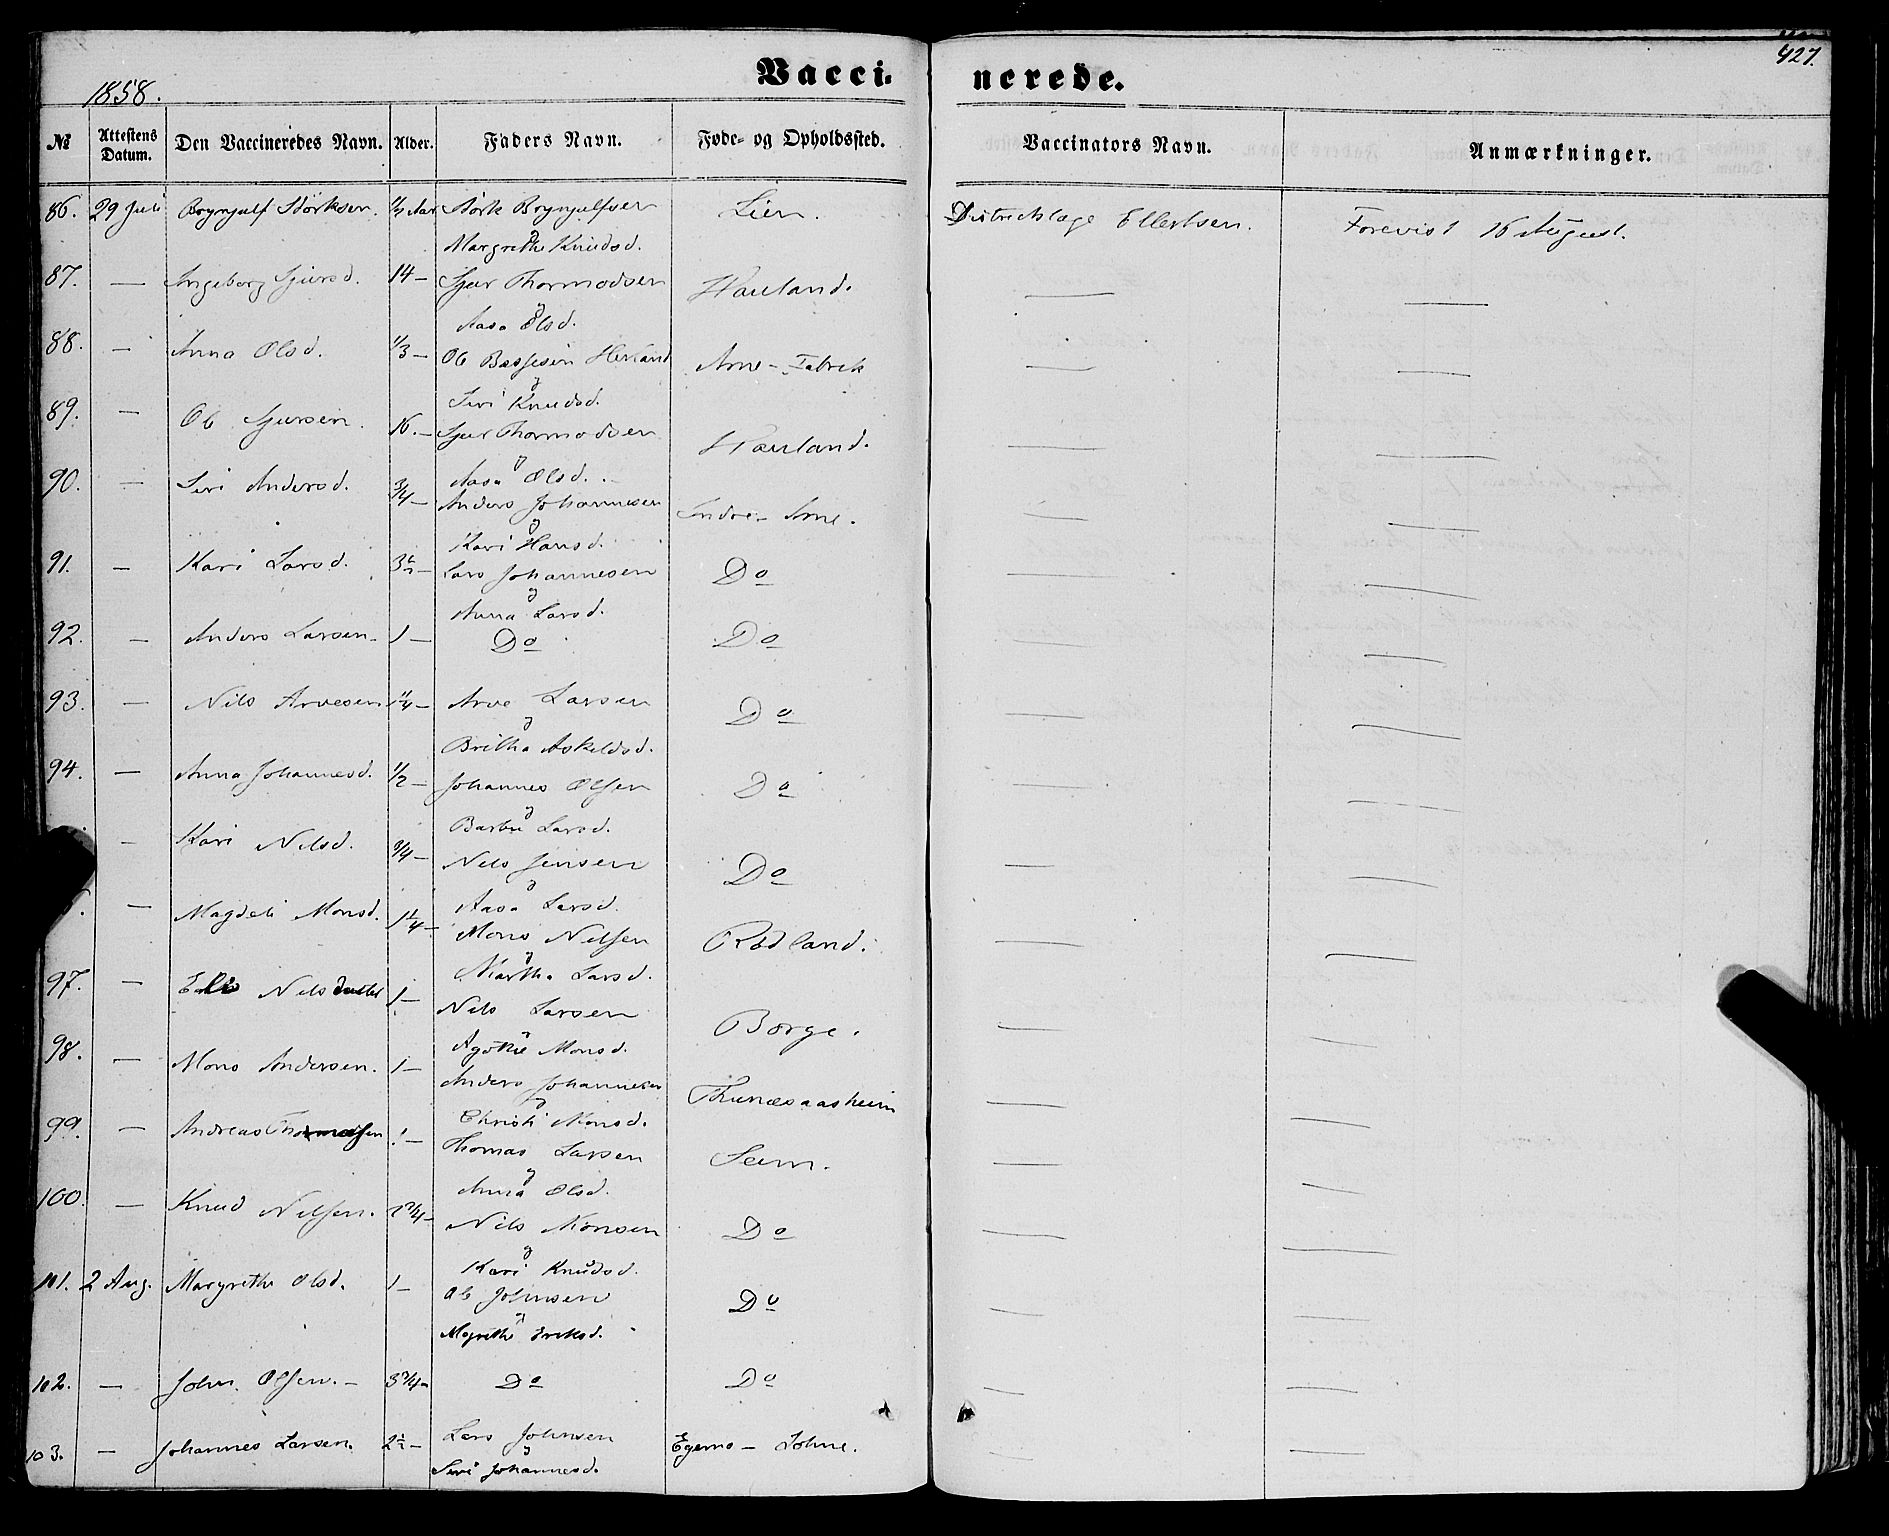 Vaccinerede.
427.
1858.
№ Attestens Datum. Den Vaccineredes Navn. Alder. Faders Navn. Føde- og Opholdssted. Vaccinators Navn. Anmærkninger.
86. 29 Juli Brynjulf Störksen. ½ Aar Störk Brynjulfsen Lien. Districtslæge Ellertsen. Forevist 16 August.
Margrethe Knudsd.
87. — Ingeborg Sjursd. 14 — Sjur Thormodsen Hauland. — —
og
Aasa Olsd.
88. — Anna Olsd. ⅓ — Ole Herland Arne-Fabrik — —
og
Siri Knudsd.
89. — Ole Sjursen. 16. — Sjur Thormodsen Hauland. — —
og
Aasa Olsd.
90. — Siri Andersd. ¾ — Anders Johannesen Indre-Arne. — —
og
Kari Hansd.
91. — Kari Larsd. 3½ — Lars Johannesen Do — —
og
Anna Larsd.
92. — Anders Larsen. 1 — Do Do — —
93. — Nils Arvesen 1¼ — Arve Larsen Do — —
og
Britha Askeldsd.
94. — Anna Johannesd. ½ — Johannes Olsen Do — —
og
Larsd.
— Kari Nilsd. ¾ — Nils Jensen Do — —
og
Aasa Larsd.
— Magdeli Monsd. 1¼ — Mons Nilsen Rödland. — —
og
Martha Larsd.
97. — Nilsdatter 1 — Nils Larsen Borge. — —
og
Agathe Monsd.
98. — Mons Andersen. 1 — Anders Johannesen Thunesaasheim — —
og
Christi Monsd.
99. — Andreas Thomassen 1 — Thomas Larsen Seim. — —
og
Anna Olsd.
100. — Knud Nilsen. 2¾ — Nils Monsen Do — —
og
Kari Knudsd.
101. 2 Aug. Margrethe Olsd. 1 — Ole Johnsen Do — —
og
Mgrethe Eriksd.
102. — John Olsen. — 3¾ — Do Do — —
103. — Johannes Larsen. 2½ — Lars Johnsen — —
og
Siri Johannesd.